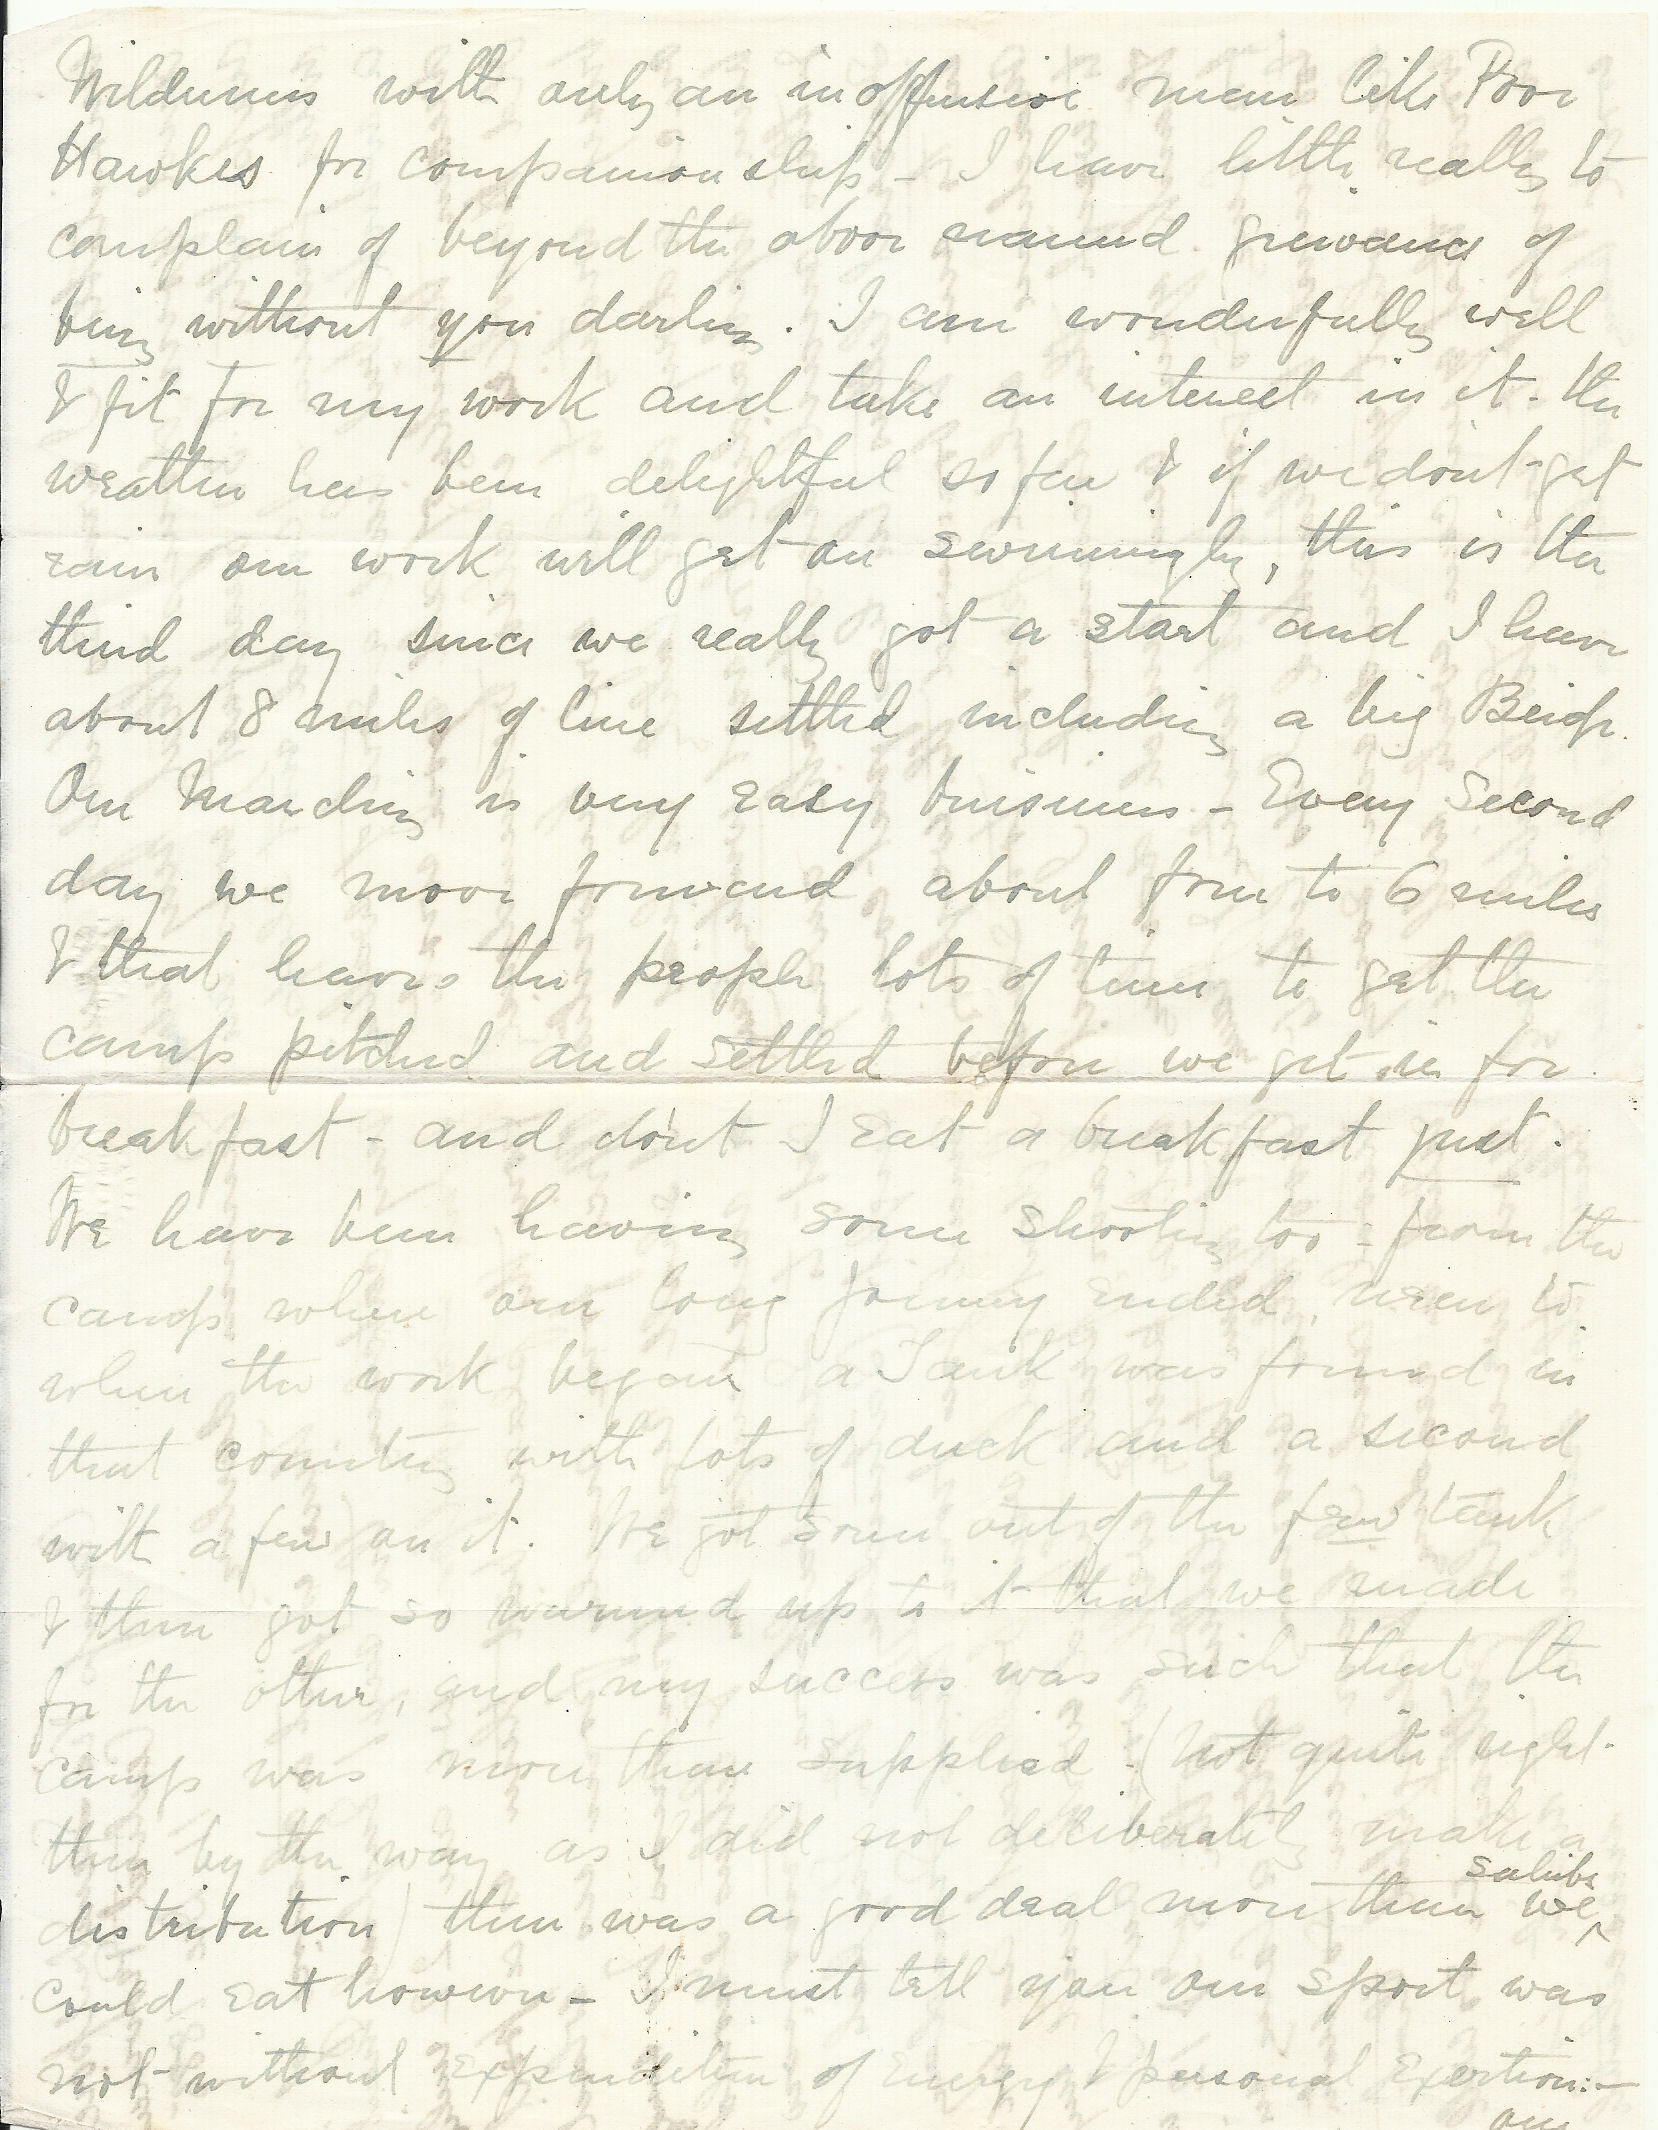 Wilderness with only an inoffensive man like Poor
Hawkes for companionship - I have little really to
complain of beyond the above named grievance of
being without you darling. I am wonderfully well
& fit for my work and take an interest in it - the
weather has been delightful so far & if we dont get
rain our work will get on swimmingly, this is the
third day since we really got a start and I have
about 8 miles of line settled including a big
Our Marching is very easy buisiness - Every second
day we move forward about four to 6 miles
& that leaves the people lots of time to get the
camp pitched and settled before we get in for
breakfast - and dont I eat a breakfast just.
We have been having some shooting too - from the
camp where our long journey ended,
when the work began a Tank was found in
that country with lots of duck and a second
with a few on it. We got some out of the few tank
& then got so warmed up to it that we made
for the other, and my success was such that the
camp was more than supplied - (not quite right
then by the way as I did not deliberately make a
distribution) there was a good deal more than we sahibs
could eat however - I must tell you our sport was
not without expenditure of Energy & personal Exertion:-
our